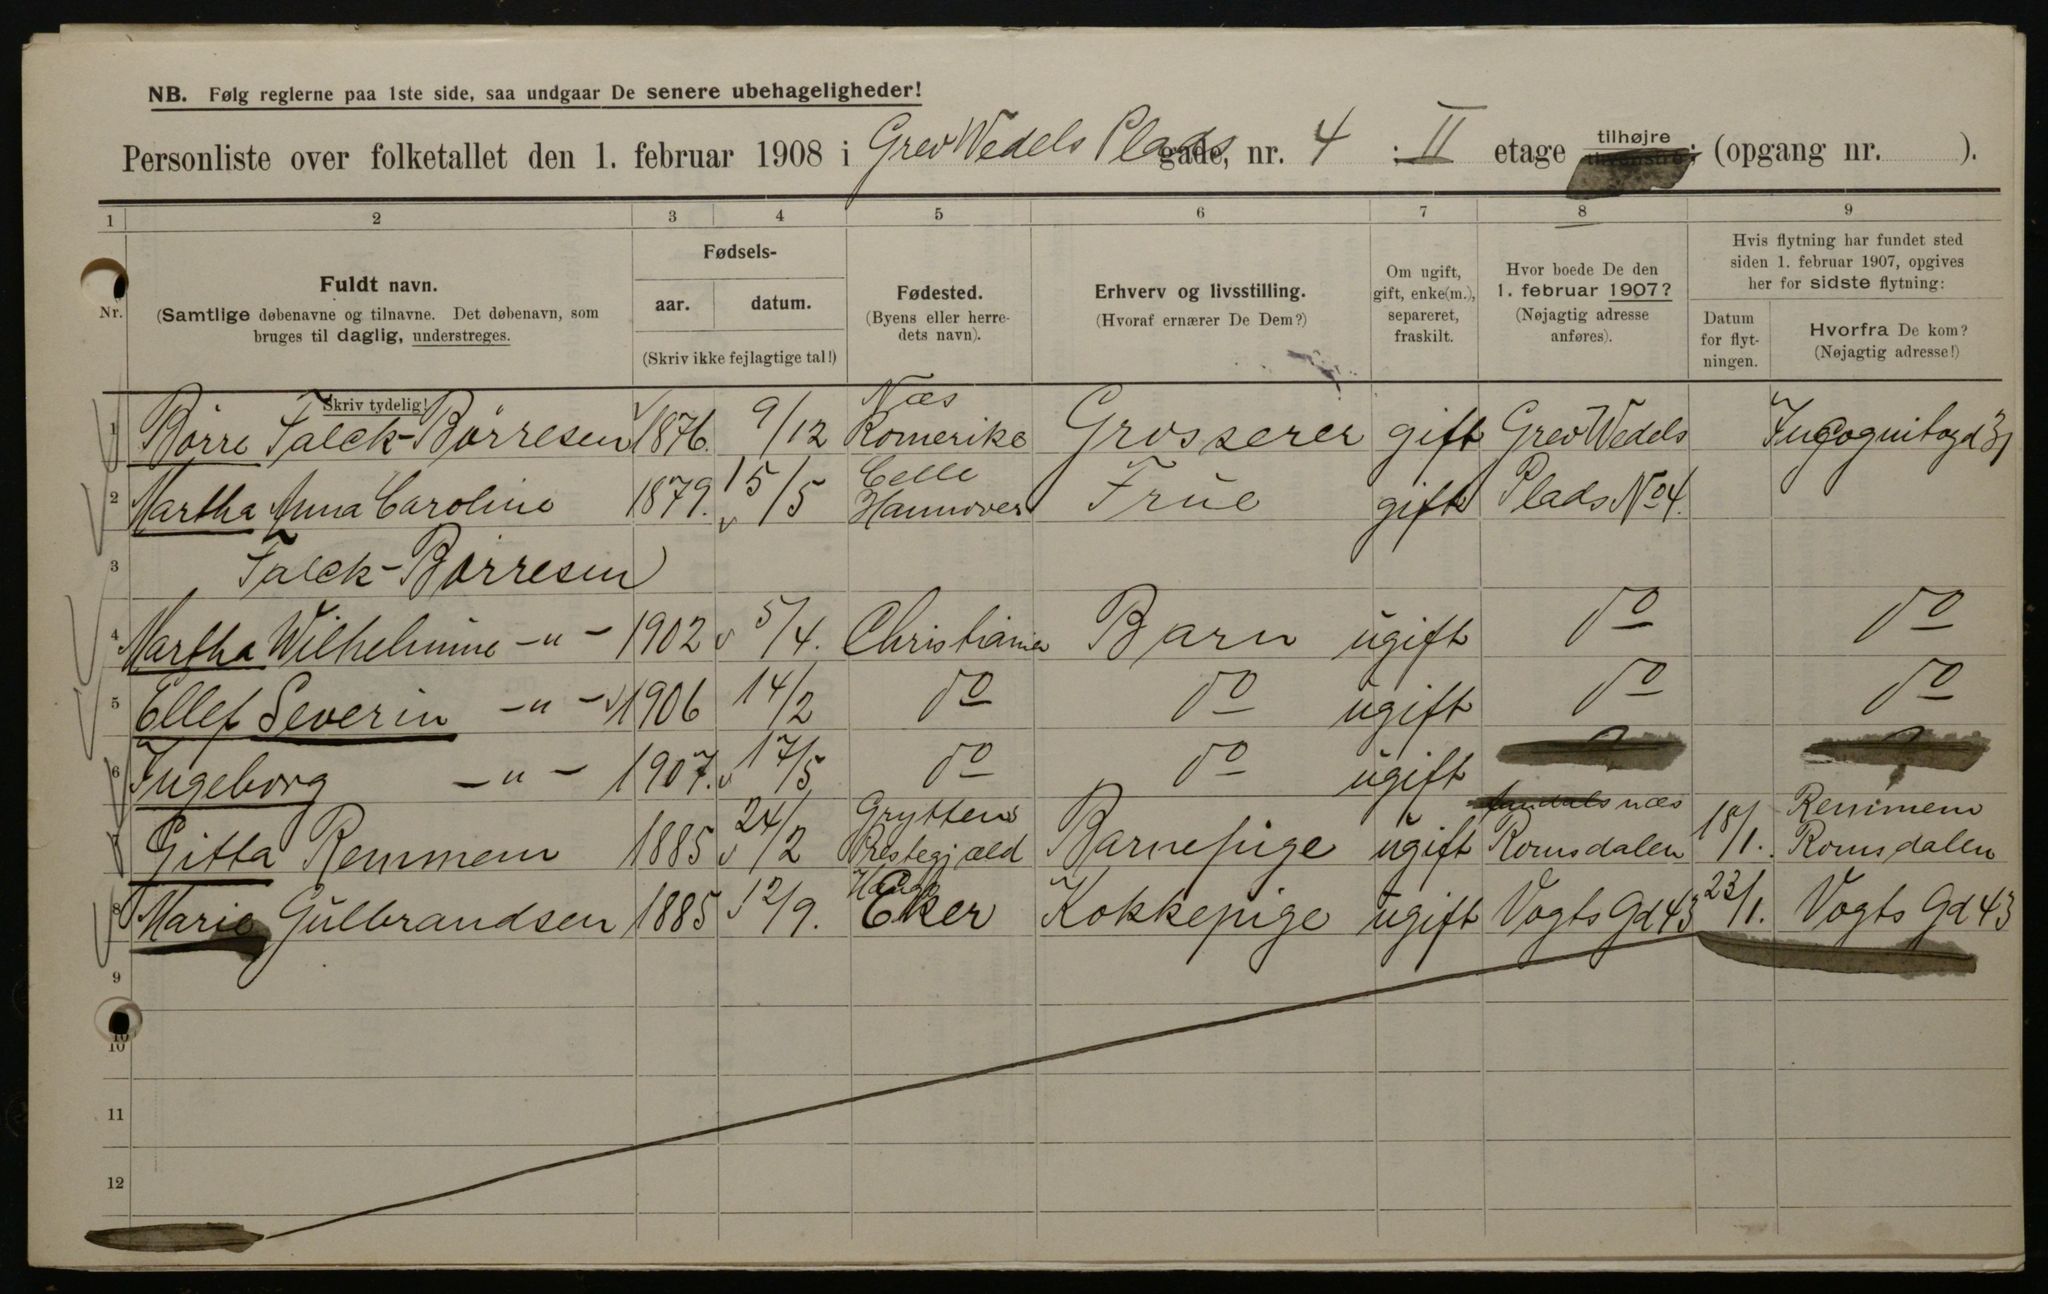 NB. Følg reglerne paa 1ste side, saa undgaar De senere ubehageligheder!
Personliste over folketallet den 1. februar 1908 i Grev Wedels Plads gade, nr. 4 : II etage tilhøjre (opgang nr. ).
1 2 3 4 5 6 7 8 9
Nr.
Fuldt navn.
(Samtlige døbenavne og tilnavne. Det døbenavn, som
bruges til daglig, understreges.
Skriv tydelig!
Fødsels-
aar. datum.
(Skriv ikke fejlagtige tal!)
Fødested.
(Byens eller herre-
dets navn).
Erhverv og livsstilling.
(Hvoraf ernærer De Dem?)
Om ugift,
gift, enke(m.),
separeret,
fraskilt.
Hvor boede De den
1. februar 1907?
(Nøjagtig adresse
anføres).
Hvis flytning har fundet sted
siden 1. februar 1907, opgives
her for sidste flytning:
Datum
for flyt-
ningen.
Hvorfra De kom?
(Nøjagtig adresse!)
1 Børre Falck-Børresen 1876. 9/12 Næs Romerike Grosserer gift Grev Wedels Incognitogd 31
2 Martha Anna Caroline 1879. 15/5 Celle Hannover Frue gift Plads No 4.
3 Falck-Børresen
4 Martha Wilhelmine -"- 1902 5/4. Christiania Barn ugift do do
5 Ellef Severin -"- 1906 14/2 do do ugift do do
6 Ingeborg -"- 1907. 17/5 do do ugift
7 Gitta Remmem 1885 24/2 Gryttens Prestegjæld Barnepige ugift Romsdalen 18/1. Remmem Romsdalen
8 Marie Gulbrandsen 1885 12/9. Eker Kokkepige ugift Vogts Gd 43 23/1. Vogts Gd 43
9
10
10
11
12